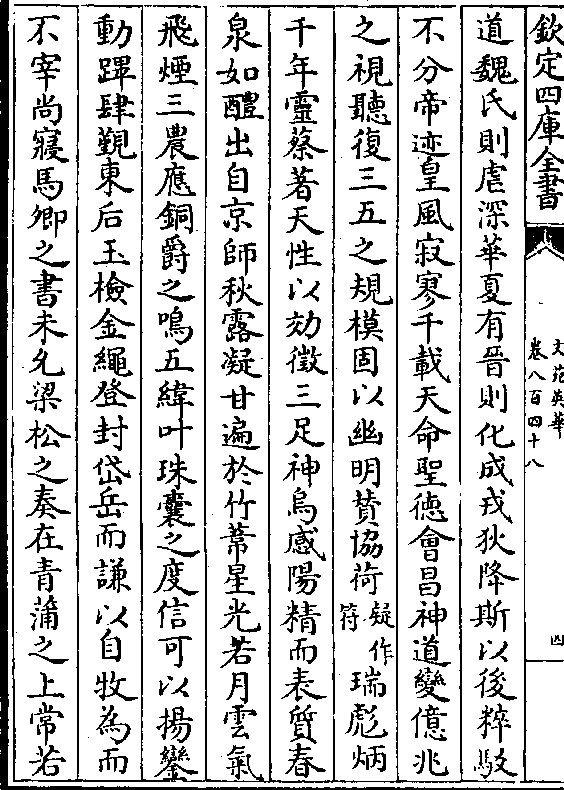 欽定四庫全書
文苑英華
卷八百四十八
四
道魏氏則虐深華夏有晉則化成戎狄降斯以後粹駁
不分帝迹皇風寂寥千載天命聖德會昌神道變億兆
之視聽復三五之規模固以幽明賛協荷疑作符瑞彪炳
千年靈蔡著天性以効徵三足神烏感陽精而表質春
泉如醴出自京師秋露凝甘遍於竹葦星光若月雲氣
飛煙三農應銅爵之鳴五緯叶珠囊之度信可以揚鑾
動蹕肆覲東后玉檢金繩登封岱岳而謙以自牧為而
不宰尚寢馬卿之書未允梁松之奏在青蒲之上常若